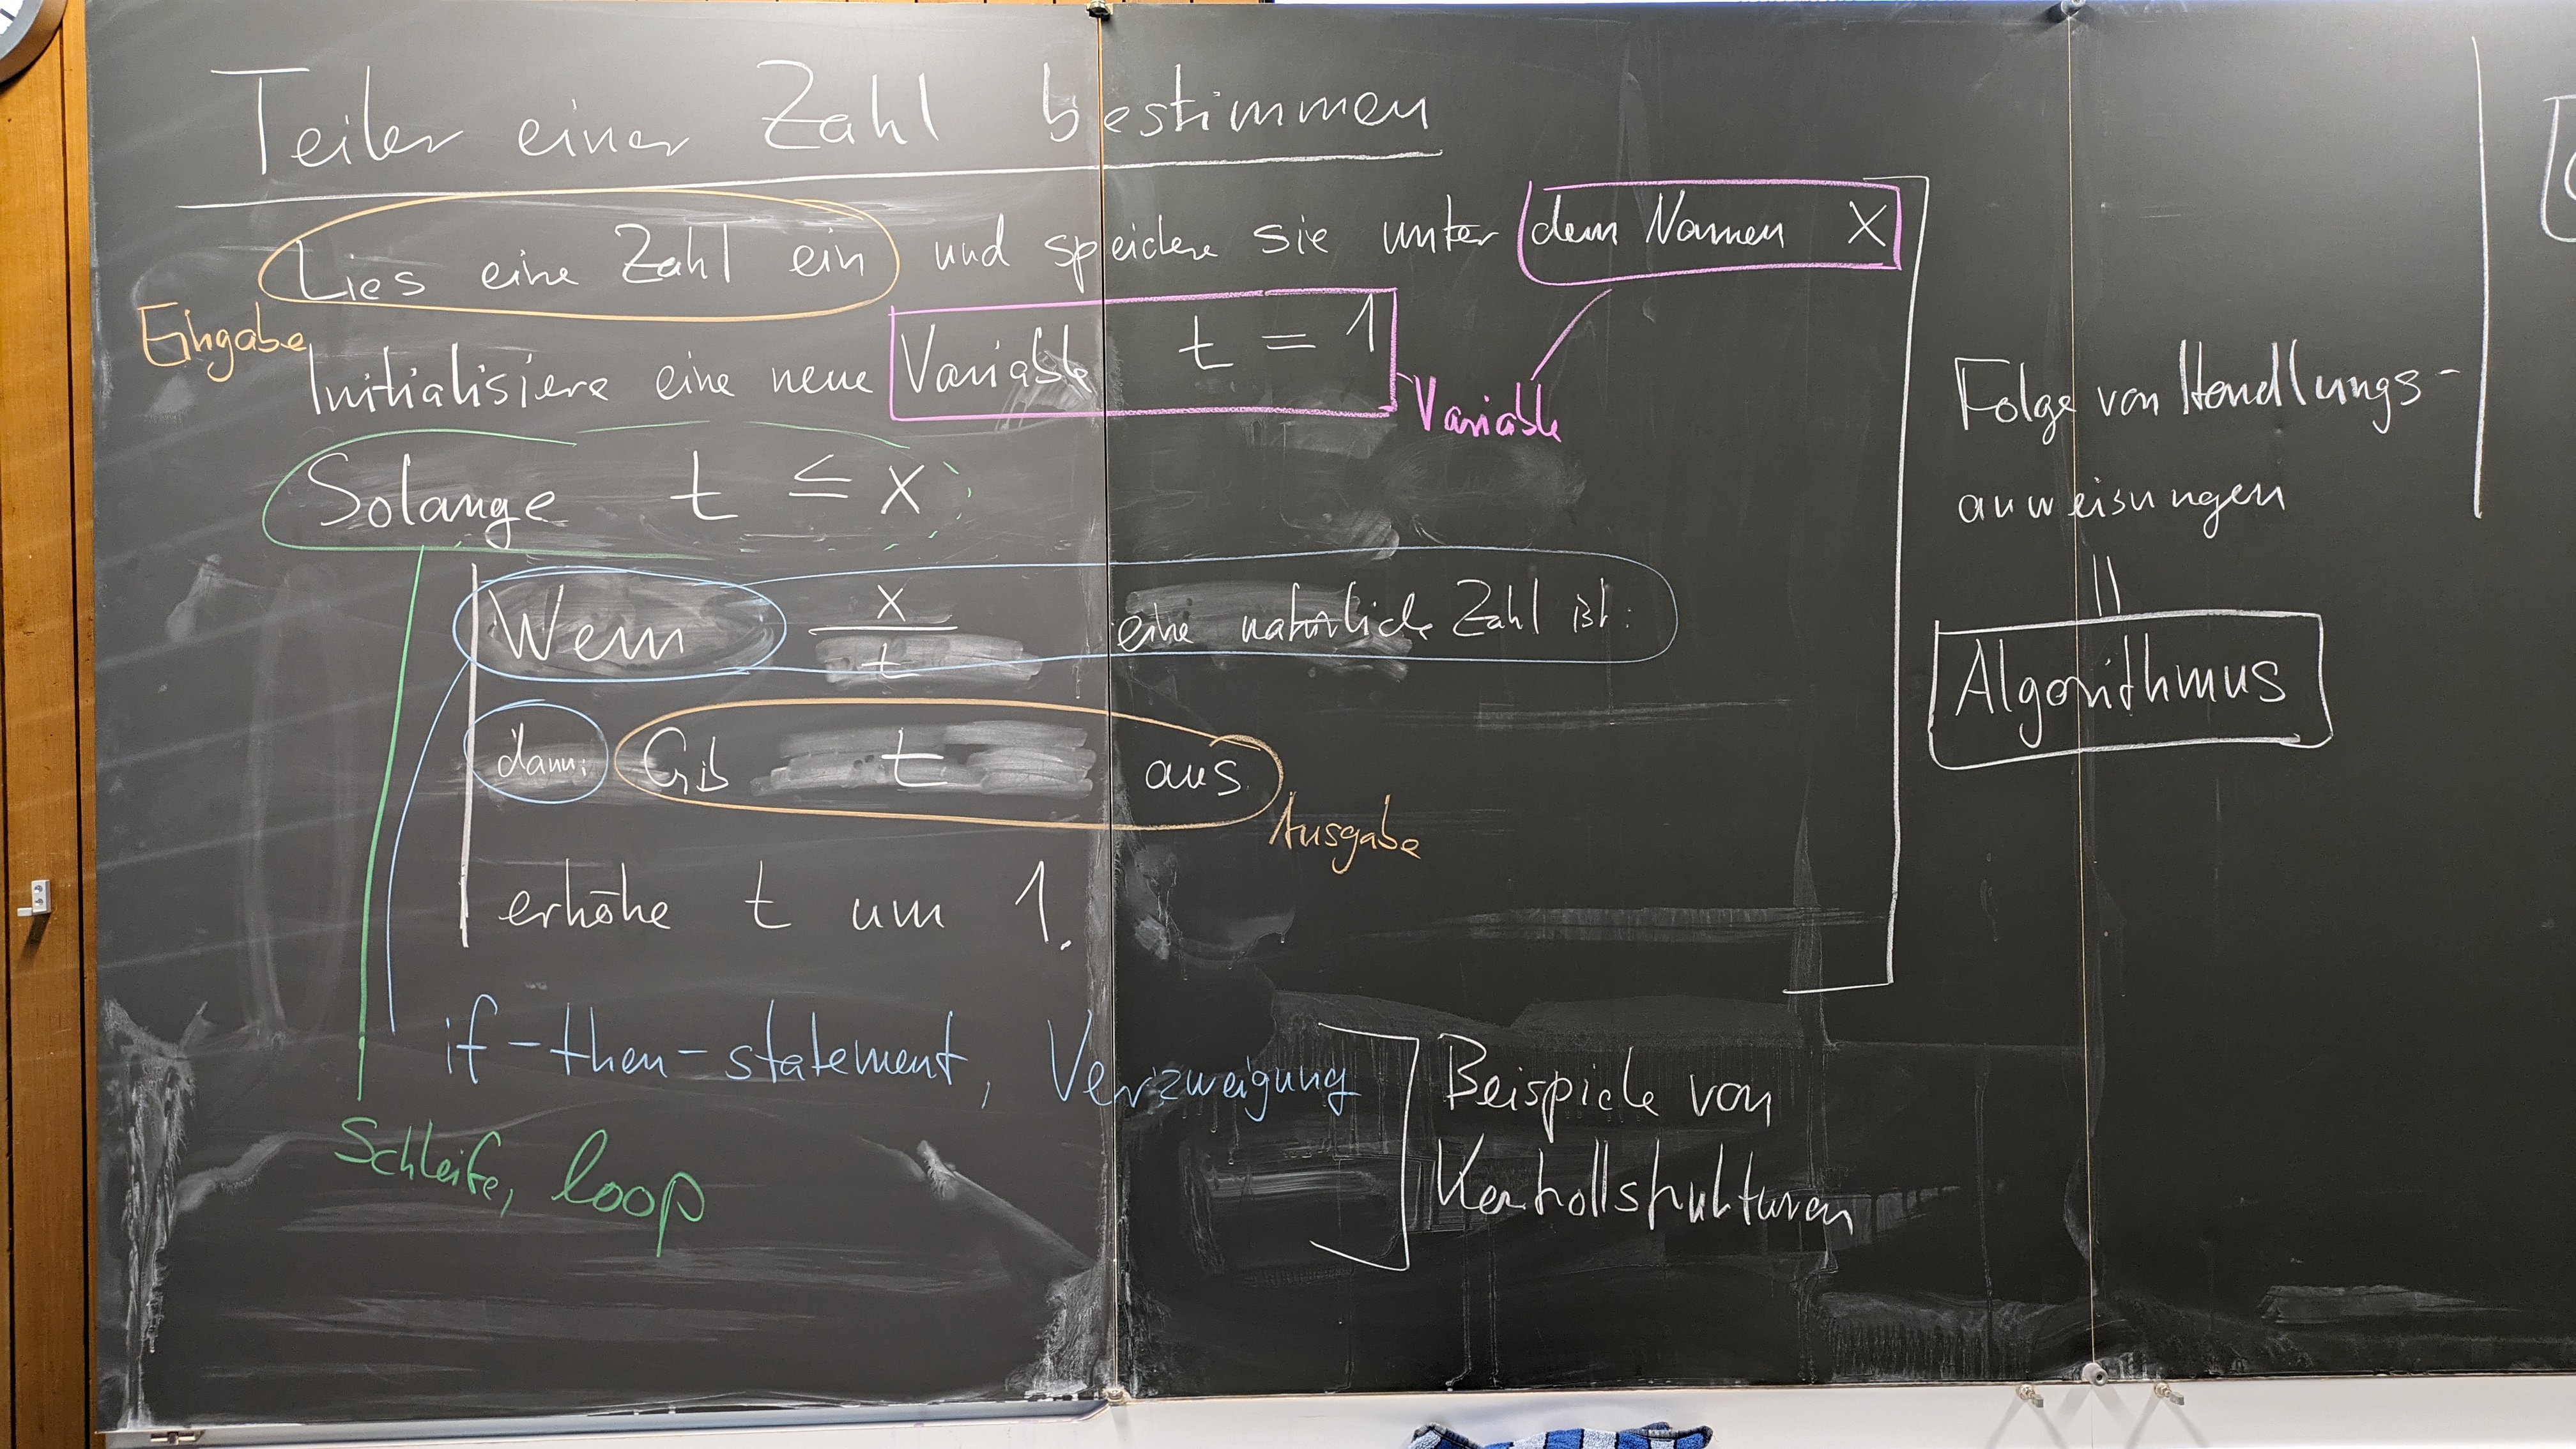 Teiler einer Zahl bestimmen
Lies eine Zahl ein und speichere sie unter dem Namen X
Eingabe
Initialisiere eine neue Variable t = 1
Variable
Solange t ≤ x
Wenn x/t eine natürliche Zahl ist:
dann: Gib t aus
Ausgabe
erhöhe t um 1.
if-then-statement, Verzweigung
Schleife, loop
Beispiele von
Kontrollstrukturen
Folge von Handlungs-
anweisungen
||
Algorithmus